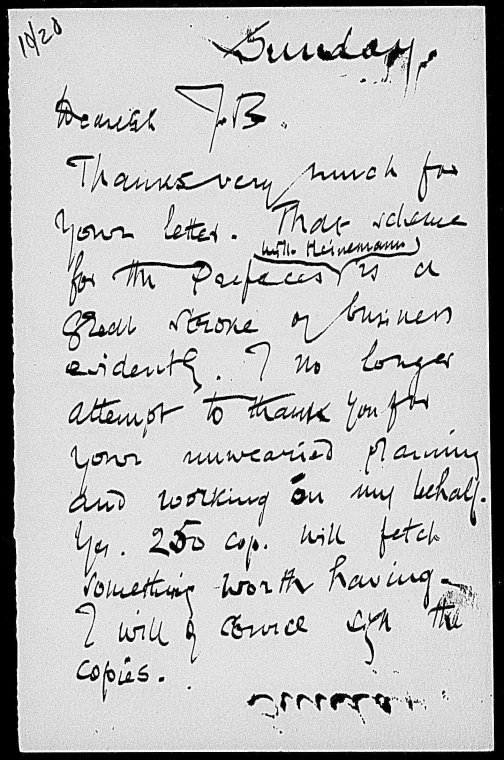 10/20
Sunday.
Dearest J.B.
Thanks very much for
your letter. That scheme
with Heinemann
for the Prefaces is a
great stroke of business
evidently. I no longer
attempt to thank you for
your unwearied planning
and working on my behalf.
Yes. 250 cop. will fetch
something worth having.
I will of course sign the
copies.